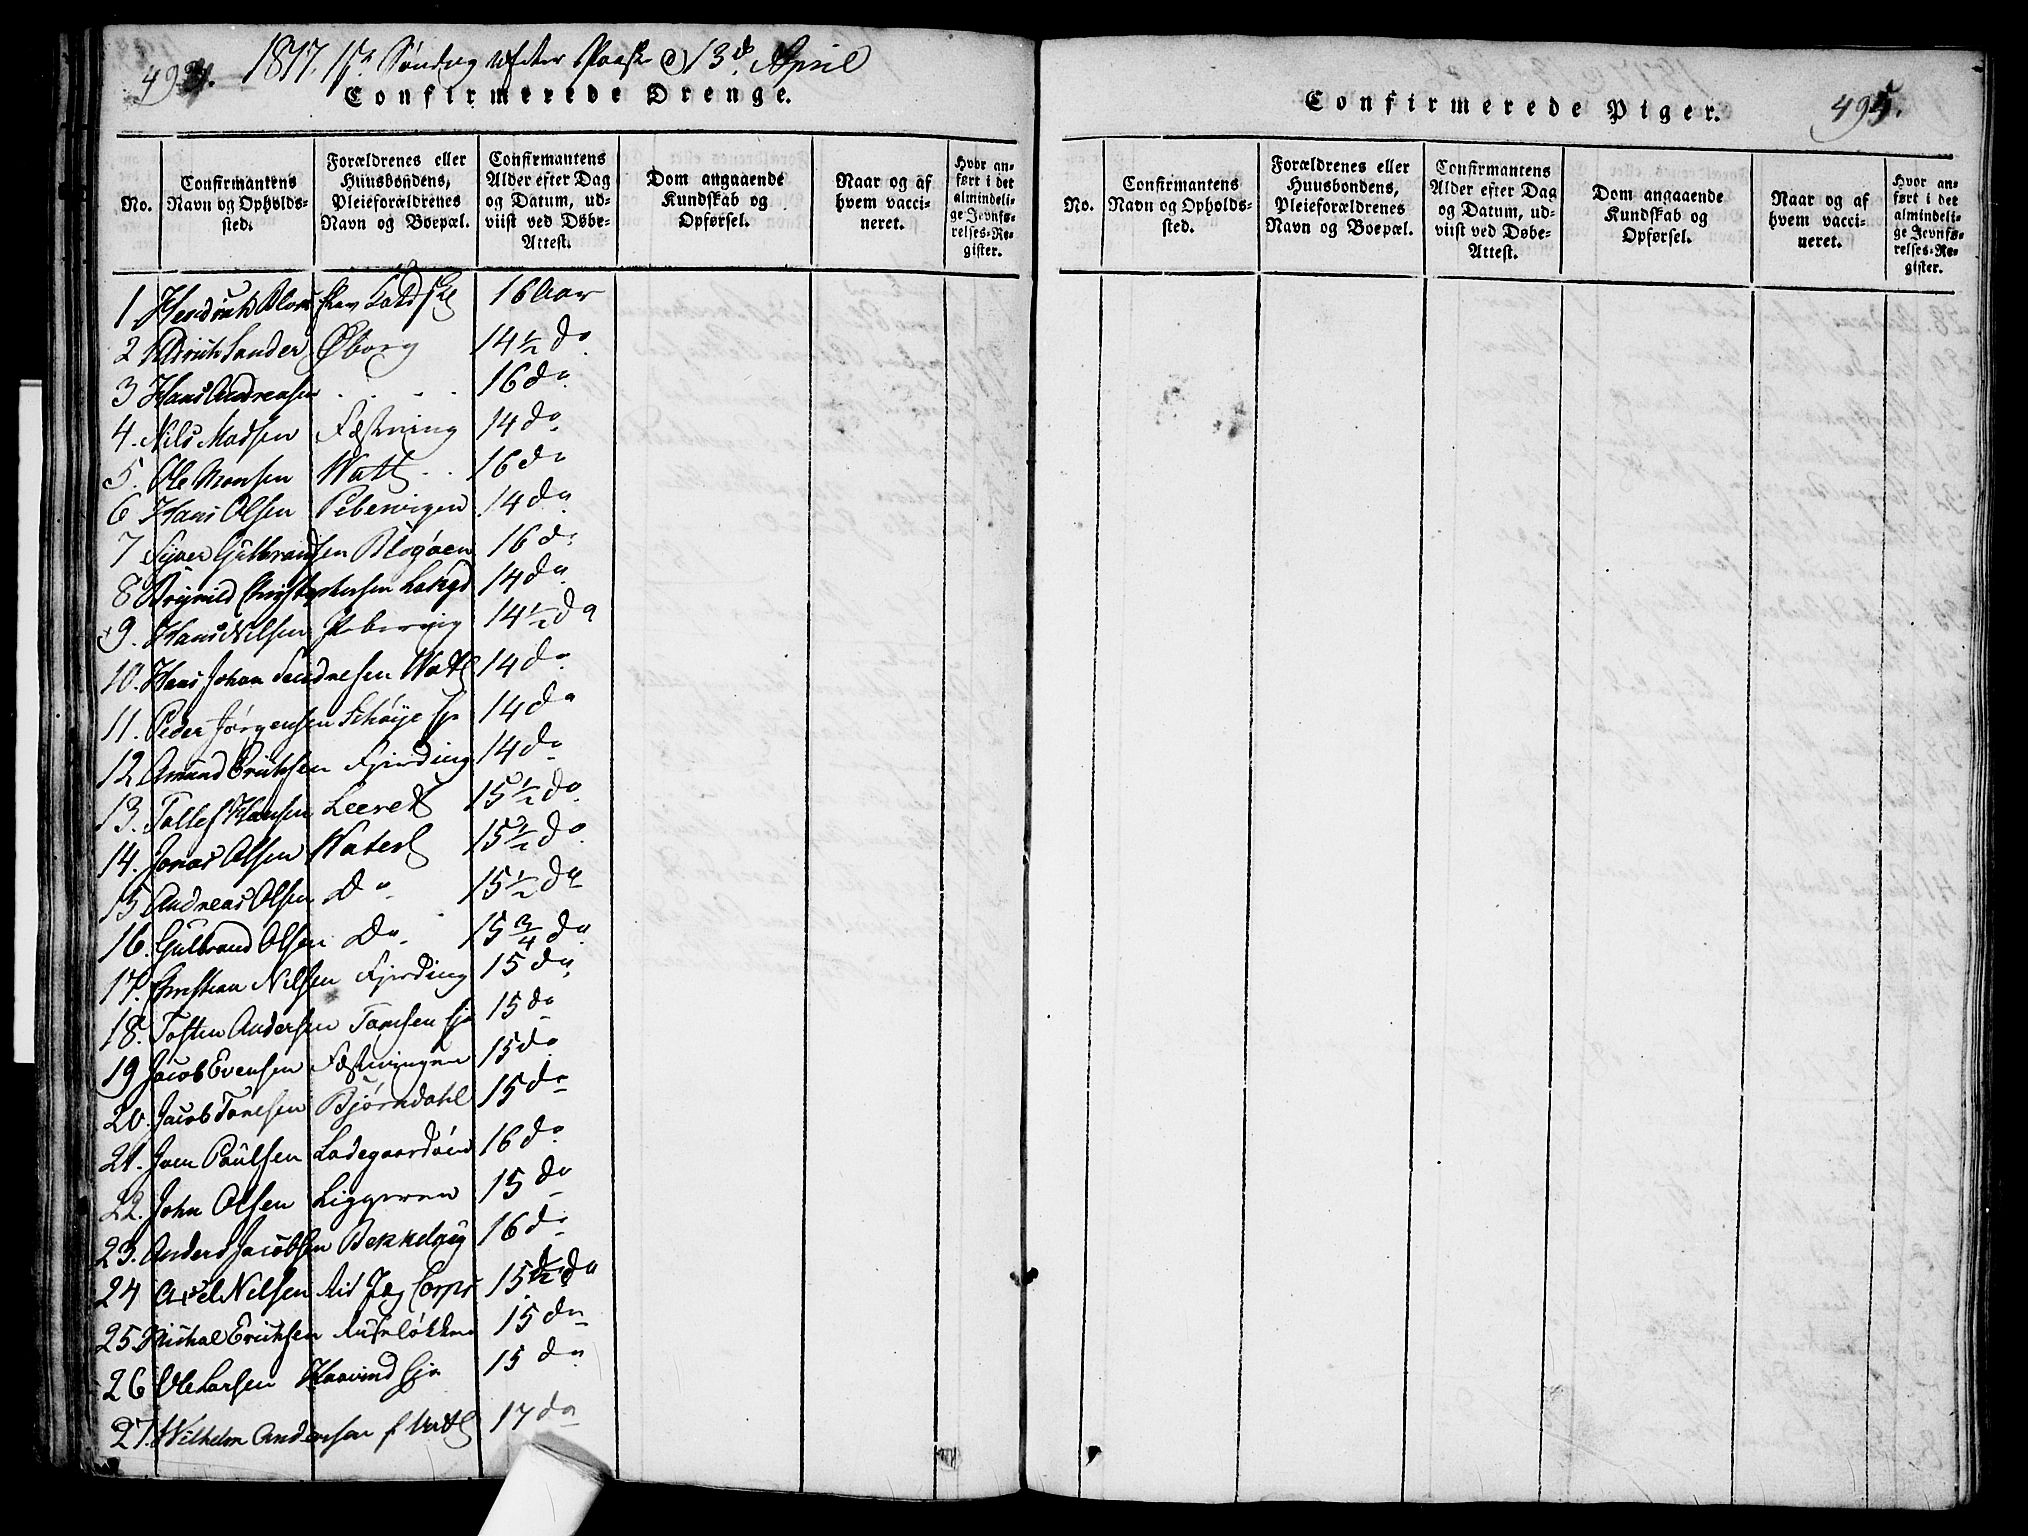 494.
1817. 1ste Søndag efter Paaske d 13de April
Confirmerede Drenge.
No.
Confirmantens Navn og Opholds-sted.
Forældrenes eller Huusbondens, Pleieforældrenes Navn og Boepæl.
Confirmantens Alder efter Dag og Datum, ud-viist ved Døbe-Attest.
Dom angaaende Kundskab og Opførsel.
Naar og af hvem vacci-neret.
Hvor an-ført i det almindeli-ge Jevnfø-relses-Re-gister.
1 Hendrich 16 Aar
2 Sander Øborg 14½ do
3 Hans Andreasen . . . . 16 do
4. Nils Madsen Fæstning 14 do
5. Ole Monsen Watl . . 16 do
6 Hans Olsen Pebervigen 14 do
7 Syver Gulbrandsen 16 do
8 Christophersen 14 do
9. Hans Nilsen Pebervig 14½ do
10. Hans Johan Watl 14 do
11. Peder Jørgensen Schøye 14 do
12 Amund Erichsen Fjerding 14 do
13. Tollef Hansen Leeret 15½ do
14. Jonas Olsen Waterl 15½ do
15 Andreas Olsen Do 15½ do
16. Gulbrand Olsen Do 15¾ do
17. Christian Nilsen Fjerding 15 do
18. Tosten Andersen Tomsen 15 do
19 Jacob Evensen Fæstningen 15 do
20. Jacob Tonesen Bjørndahl 15 do
21. Joen Paulsen Ladegaardsøen 16 do
22. John Olsen Liggeren 15 do
23. Anders Jacobsen Bekkelaug 16 do
24 Axel Nilsen Rid Jæg Corps 15½ do
25. Michal Erichsen 15 do
26 Ole Larsen Haavind 15 do
27. Wilhelm Andersen f Watl 17 do
Confirmerede Piger.
495.
No.
Confirmantens Navn og Opholds-sted.
Forældrenes eller Huusbondens, Pleieforældrenes Navn og Boepæl.
Confirmantens Alder efter Dag og Datum, ud-viist ved Døbe-Attest.
Dom angaaende Kundskab og Opførsel.
Naar og af hvem vacci-neret.
Hvor an-ført i det almindeli-ge Jevnfø-relses-Re-gister.